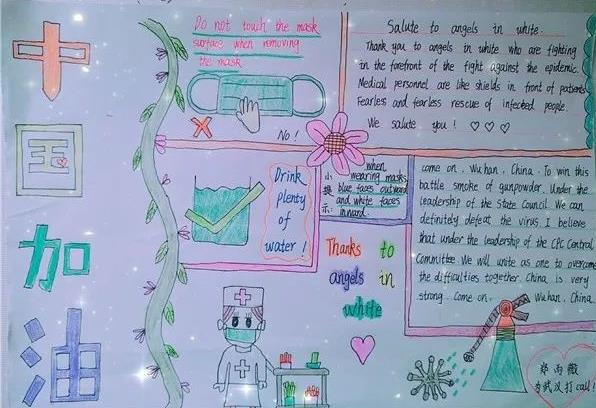 中
国
加
油
Do not touch the mask
surface when removing
the mask
No!
Salute to angels in white.
Thank you to angels in white who are fighting
in the forefront of the fight against the epidemic.
Medical personnel are like shields in front of patients
Fearless and fearless rescue of infected people.
We salute you!
Drink
plenty
of
water!
小
提
示:
when
wearing masks
blue faces outward
and white faces
inward.
come on, Wuhan, China. To win this
battle smoke of gunpowder. Under the
leadership of the State Council. We can
definitely defeat the virus I believe
that under the leadership of the CPC Central
Committee. We will unite as one to overcome
the difficulties together. China is very
strong. Come on, Wuhan, China.
Thanks to
angels in
white
为武汉打call!